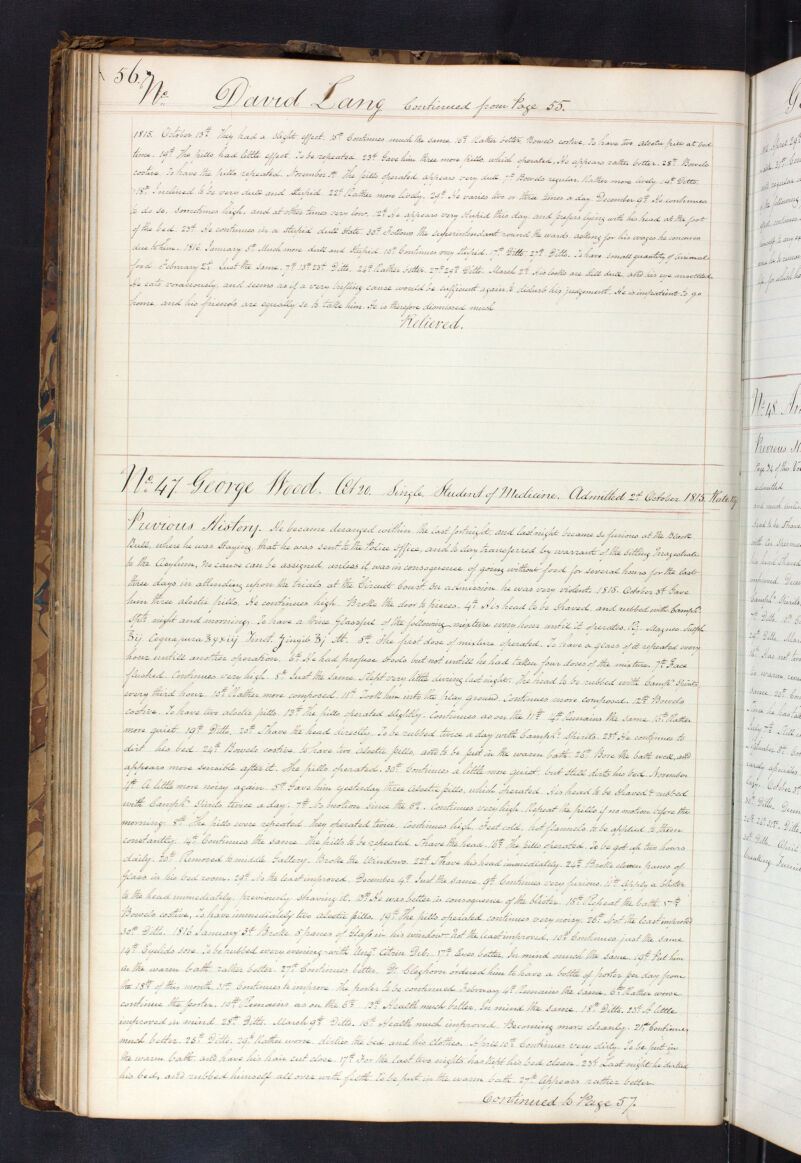 56.
No. David Lang Continued from Page 55.
1815. October 13th They had a slight effect. 15th Continues much the same. 16th Rather better. Bowels costive. To have two aloetic pills at bed
time. 19th The pills had little effect. To be repeated. 23d Gave him three more pills which operated. He appears rather better. 28th Bowels
costive. To have the pills repeated. November 1st The pills operated appears very dull. 7th Bowels regular. Rather more lively. 14th Ditto.
18th Inclined to be very dull and stupid. 22d Rather more lively. 29th He varies two or three times a day. December 9th He continues
to do so, sometimes high, and at other times very low. 12th He appears very stupid this day and prefers lying with his head at the foot
of the bed. 23d He continues in a stupid dull state. 30th Follows the superintendant round the wards asking for his wages he conceives
due to him. 1816. January 5th Much more dull and stupid. 10th Continues very stupid. 17th Ditto. 27th Ditto. To have small quantity of animal
food. February 2d Just the same. 7th 15th 23d Ditto. 24th Rather better. 27th 29th Ditto. March 2d His looks are still dull, and his eye unsettled.
He eats voraciously, and seems as if a very trifling cause would be sufficient again to disturb his judgement. He is impatient to go
home, and his friends are equally so to take him. He is therefore dismissed much
Relieved.
No. 47. George Wood. Æt 20. Single. Student of Medicine. Admitted 2d October 1815.
Previous History. He became deranged within the last fortnight, and last night became so furious at the Black
Bull, where he was staying, that he was sent to the Police Office, and to day transferred by warrant of the sitting Magistrate
to the Asylum. No cause can be assigned, unless it was in consequence of going without food for several hours for the last
three days in attending upon the trials at the Circuit Court. On admission he was very violent. 1815. October 3d Gave
him three aloetic pills. He continues high. Broke the door to pieces. 4th His head to be shaved, and rubbed with Camph.
Spts. night and morning. To have a wine glassful of the following mixture every hour until it operates. Rj. Magnes. Sulph.
5th The first dose of mixture operated. To have a glass of it repeated every
hour untill another operation. 6th He had profuse stools but not untill he had taken four doses of the mixture. 7th Face
flushed. Continues very high. 8th Just the same. Slept very little during last night. The head to be rubbed with Camph. Spirits
every third hour. 10th Rather more composed. 11th Took him into the play ground. Continues more composed. 12th Bowels
costive. To have two aloetic pills. 13th The pills operated slightly. Continues as on the 11th 14th Remains the same. 15th Rather
more quiet. 19th Ditto. 20th Shave the head directly. To be rubbed twice a day with Camph. Spirits. 23d He continues to
dirt his bed. 24th Bowels costive to have two aloetic pills, and to be put in the warm bath. 26th Bore the bath well, and
appears more sensible after it. The pills operated. 30th Continues a little more quiet, but still dirts his bed. November
4th A little more noisy again. 5th Gave him yesterday three aloetic pills, which operated. His head to be shaved & rubbed
with Camph. Spirits twice a day. 7th No motion since the 5th. Continues very high. Repeat the pills if no motion before the
morning. 8th The pills were repeated. They operated twice. Continues high. Feet cold, hot flannels to be applied to them
constantly. 14th Continues the same. The pills to be repeated. Shave the head. 16th The pills operated. To be got up two hours
daily. 20th Removed to middle Gallery. Broke the Windows. 22d Shave his head immediately. 24th Broke eleven panes of
Glass in his bed room. 29th No the least improved. December 4th Just the same. 9th Continues very furious. 11th Apply a blister
to the head immediately, previously shaving it. 13th He was better in consequence of the blister. 15th Repeat the bath. 17th
Bowels costive, To have immediately two aloetic pills. 19th The pills operated, continues very noisy. 26th Not the least improved
30th Ditto. 1816 January 3d Broke 5 panes of Glass in his window. Not the least improved. 10th Continues just the same.
14th Eyelids sore. To be rubbed every evening with Ung. Citrin. 17th Eyes better. In mind much the same. 19th Put him
in the warm bath, rather better. 27th Continues better. Dr. Cleghorn ordered him to have a bottle of porter per day from
the 18th of this month. 31st Continues to improve. The porter to be continued. February 4th Remains the same. 6th Rather worse
continue the porter. 10th Remains as on the 6th 13th Health much better. In mind the same. 18th Ditto. 23d A little
improved in mind. 28th Ditto. March 9th Ditto. 16th Health much improved. Becoming more cleanly. 21st Continues
much better. 25th Ditto. 29th Rather worse, dirties the bed and his clothes. April 10th Continues very dirty. To be put in
the warm bath, and have his hair cut close. 17th For the last two nights has kept his bed clean. 23d Last night he dirtied
his bed, and rubbed himself all over with filth. To be put in the warm bath. 27th Appears rather better.
Continued to Page 57.